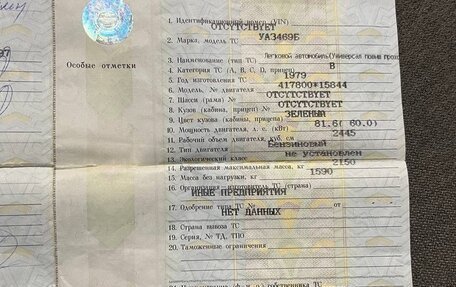 Особые отметки
1. Идентификационный номер (VIN)
ОТСУТСТВУЕТ
2. Марка, модель ТС УАЗ469Б
3. Наименование (тип ТС) Легковой автомобиль(Универсал повыш прохо
4. Категория ТС (A, B, C, D, прицеп) B
5. Год изготовления ТС 1979
6. Модель, № двигателя 417800*15844
7. Шасси (рама) № ОТСУТСТВУЕТ
8. Кузов (кабина, прицеп) № ОТСУТСТВУЕТ
9. Цвет кузова (кабины, прицепа) ЗЕЛЕНЫЙ
10. Мощность двигателя, л. с. (кВт) 81.6( 60.0)
11. Рабочий объем двигателя, куб. см 2445
12. Тип двигателя Бензиновый
13. Экологический класс не установлен
14. Разрешенная максимальная масса, кг 2150
15. Масса без нагрузки, кг 1590
16. Организация — изготовитель ТС (страна)
ИНЫЕ ПРЕДПРИЯТИЯ
17. Одобрение типа ТС № от
НЕТ ДАННЫХ
18. Страна вывоза ТС
19. Серия, № ТД, ТПО
20. Таможенные ограничения